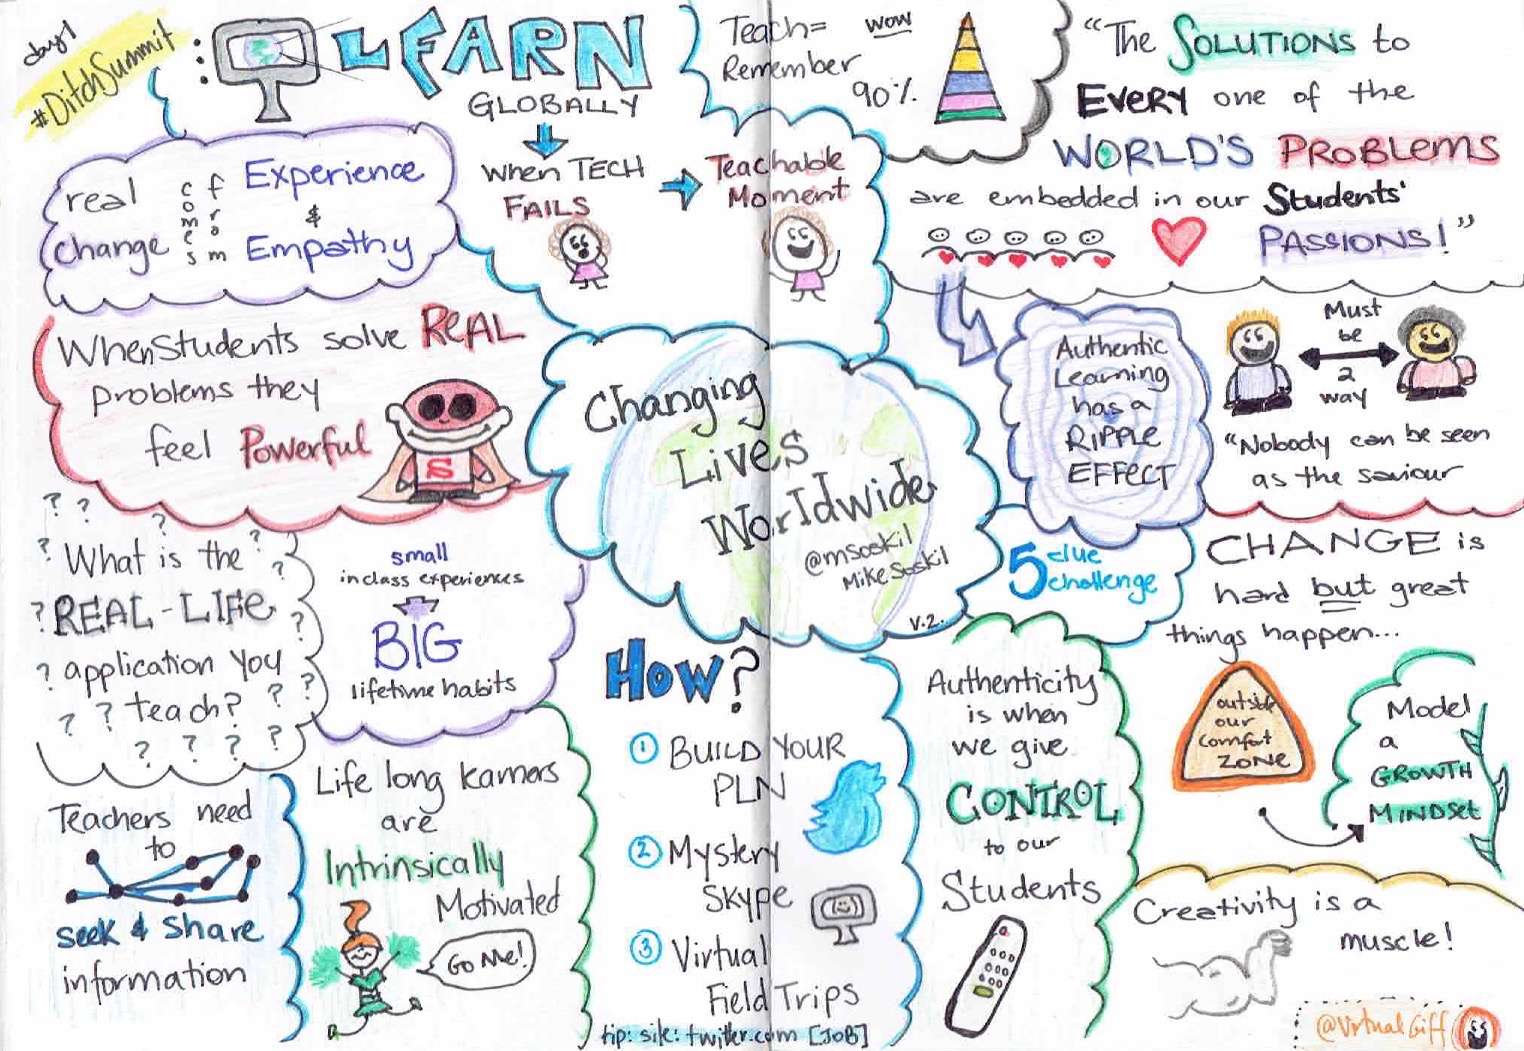 day 1
#DitchSummit
LEARN
GLOBALLY
When TECH
FAILS
Teachable
Moment
Teach=
Remember
WOW
90%
"The SOLUTIONS to
EVERY one of the
WORLD'S PROBLEMS
are embedded in our Students'
PASSIONS!"
real
change
comes
from
Experience
&
Empathy
When Students solve REAL
problems they
feel Powerful
S
Changing
Lives
Worldwide
@msoskil
Mike Soskil
V.2.
Authentic
Learning
has a
RIPPLE
EFFECT
Must
be
2
way
"Nobody can be seen
as the saviour
5 clue
challenge
CHANGE is
hard but great
things happen...
outside
our
comfort
ZONE
Model
a
GROWTH
MINDSET
? ? ?
? What is the ?
?
? REAL-LIFE ?
? application you
? ? teach? ? ?
? ? ? ?
small
in class experiences
BIG
lifetime habits
Teachers need
to
seek & share
information
Life long learners
are
Intrinsically
Motivated
Go Me!
HOW?
1 BUILD YOUR
PLN
2 Mystery
SKYPE
3 Virtual
Field Trips
tip: site: twitter.com [JOB]
Authenticity
is when
we give
CONTROL
to our
Students
Creativity is a
muscle!
@VirtualGiff